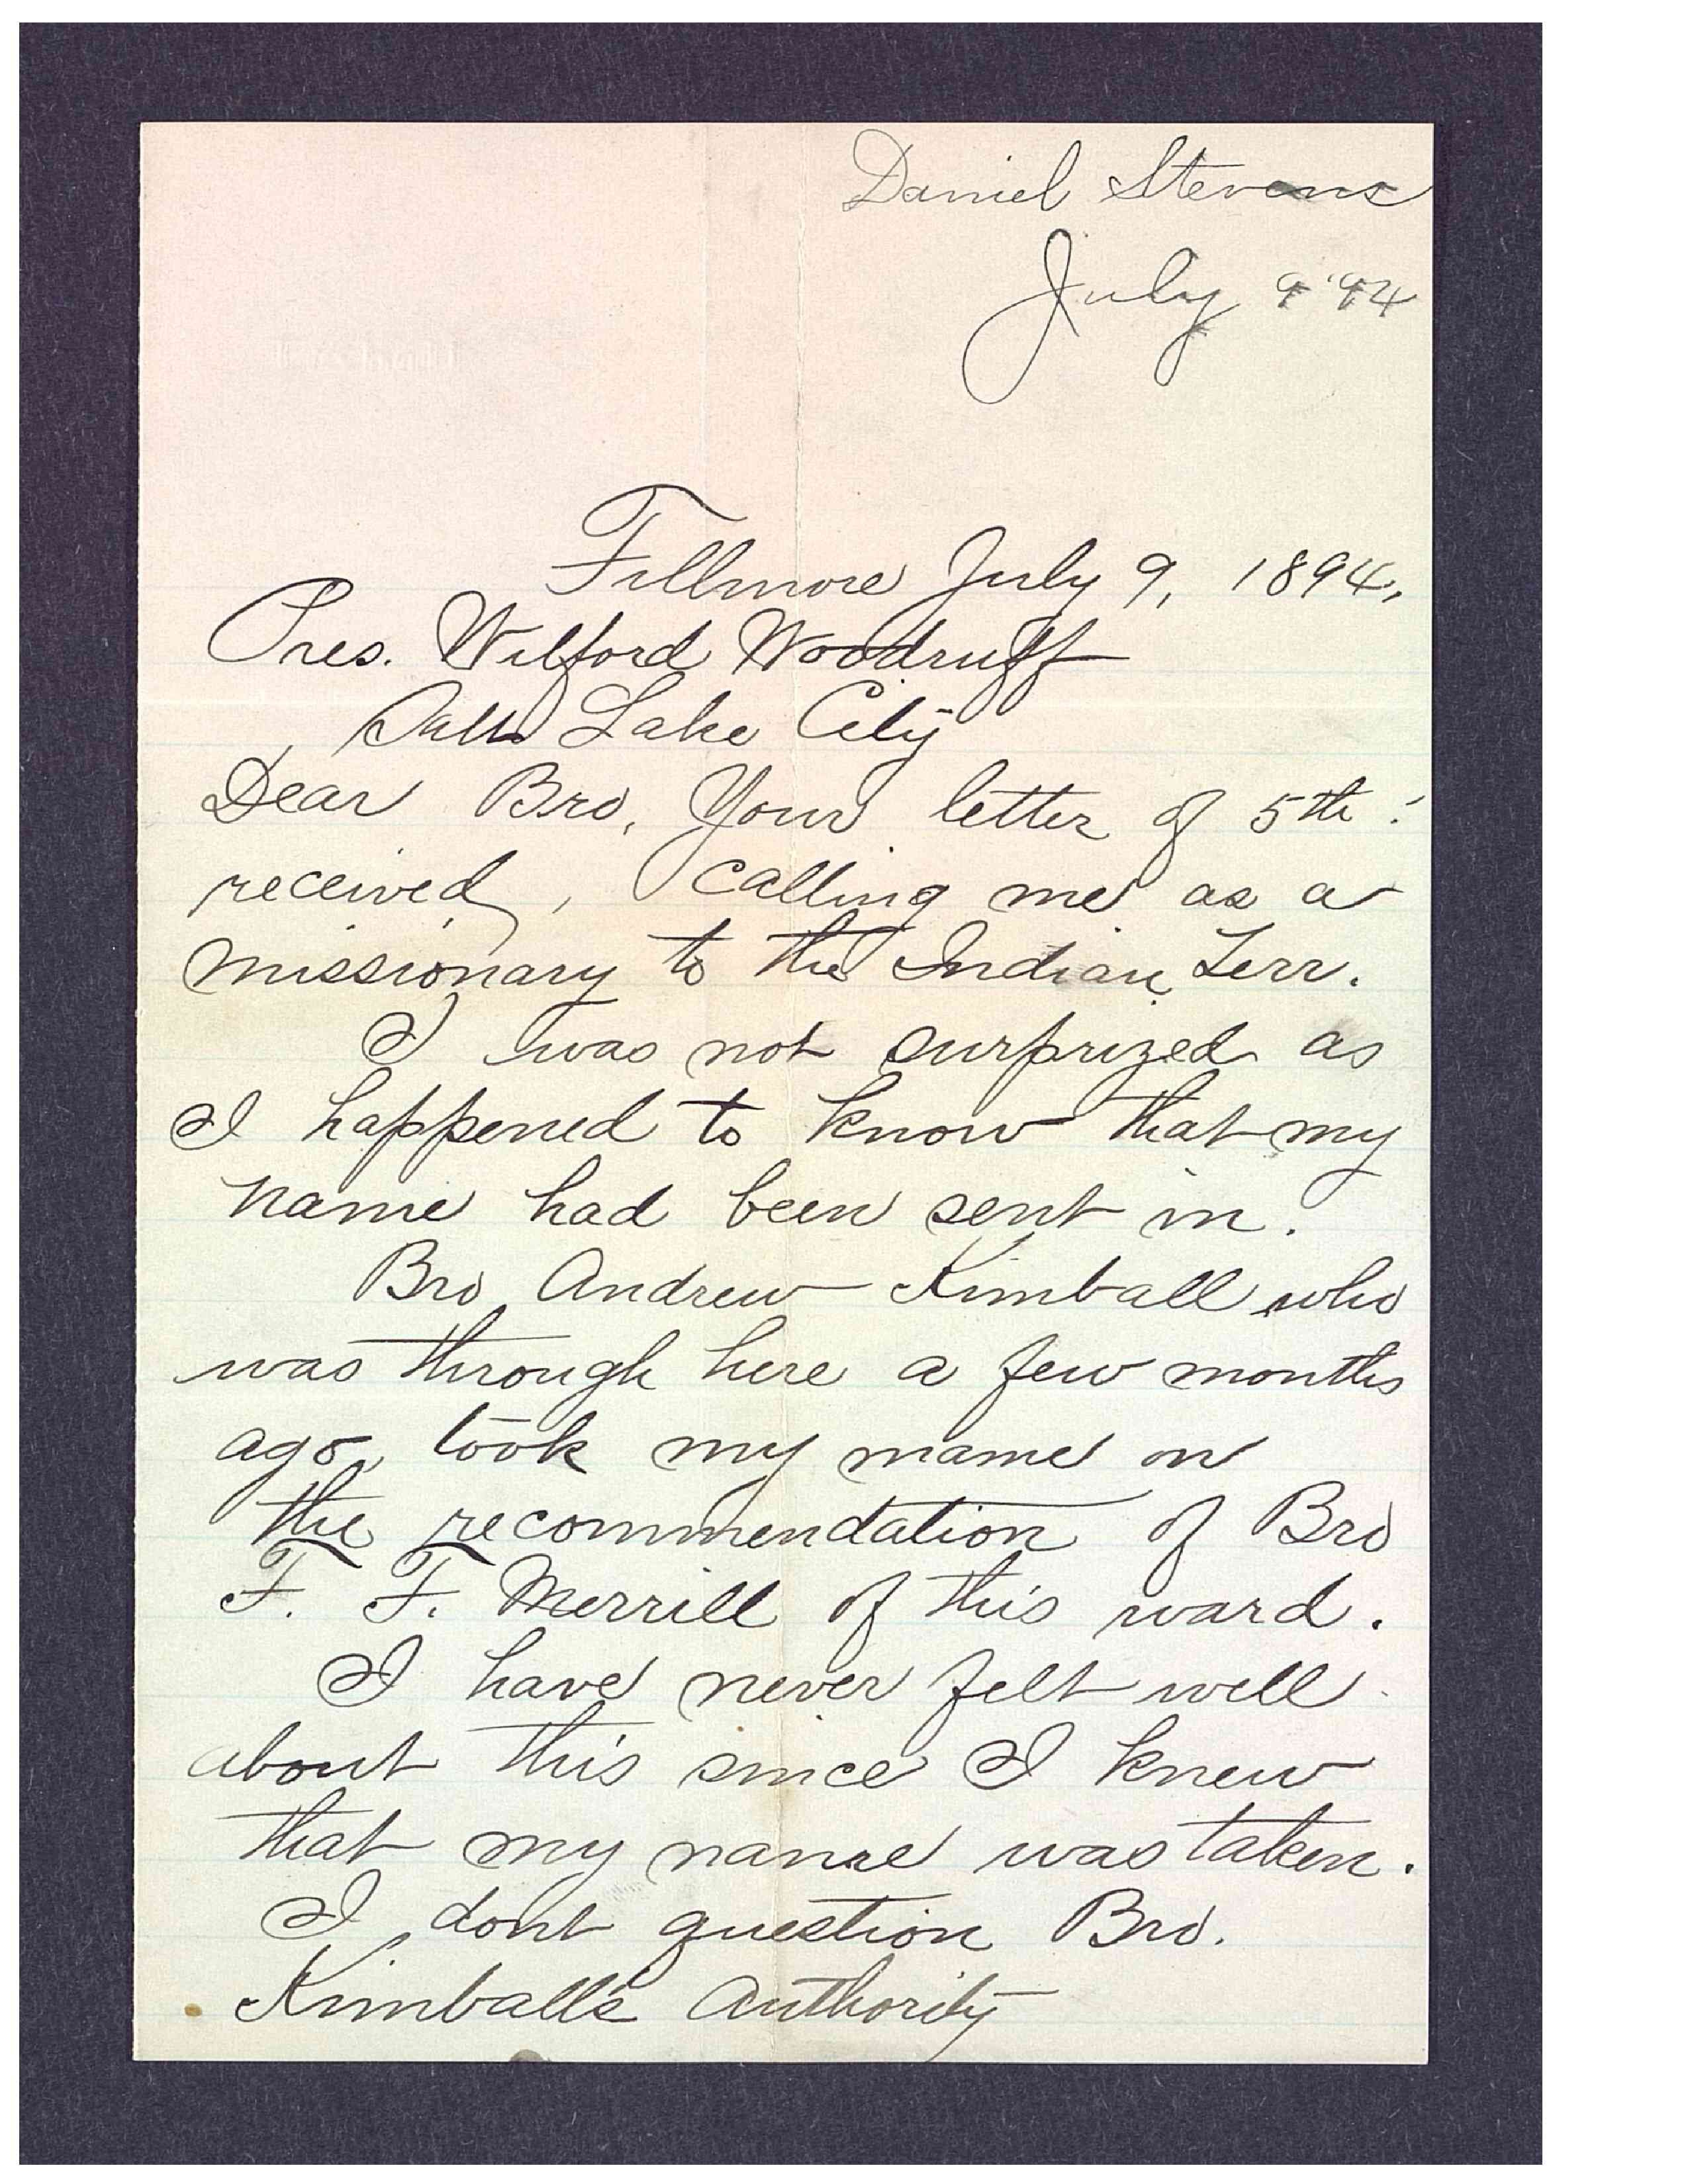 Daniel Stevens
July 9 '94
Fillmore July 9, 1894,
Pres. Wilford Woodruff
Salt Lake City
Dear Bro, Your letter of 5th
received, calling me as a
missionary to the Indian Terr.
I was not surprized as
I happened to know that my
name had been sent in.
Bro Andrew Kimball who
was through here a few months
ago, took my name on
the recommendation of Bro
F. F. Merrill of this ward.
I have never felt well
about this since I knew
that my name was taken.
I dont question Bro.
Kimball's Authority